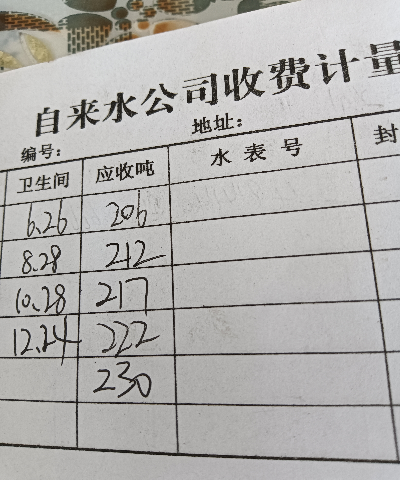 自来水公司收费计量
编号： 地址：
卫生间 应收吨 水表号 封
6.26 206
8.28 212
10.28 217
12.24 222
230